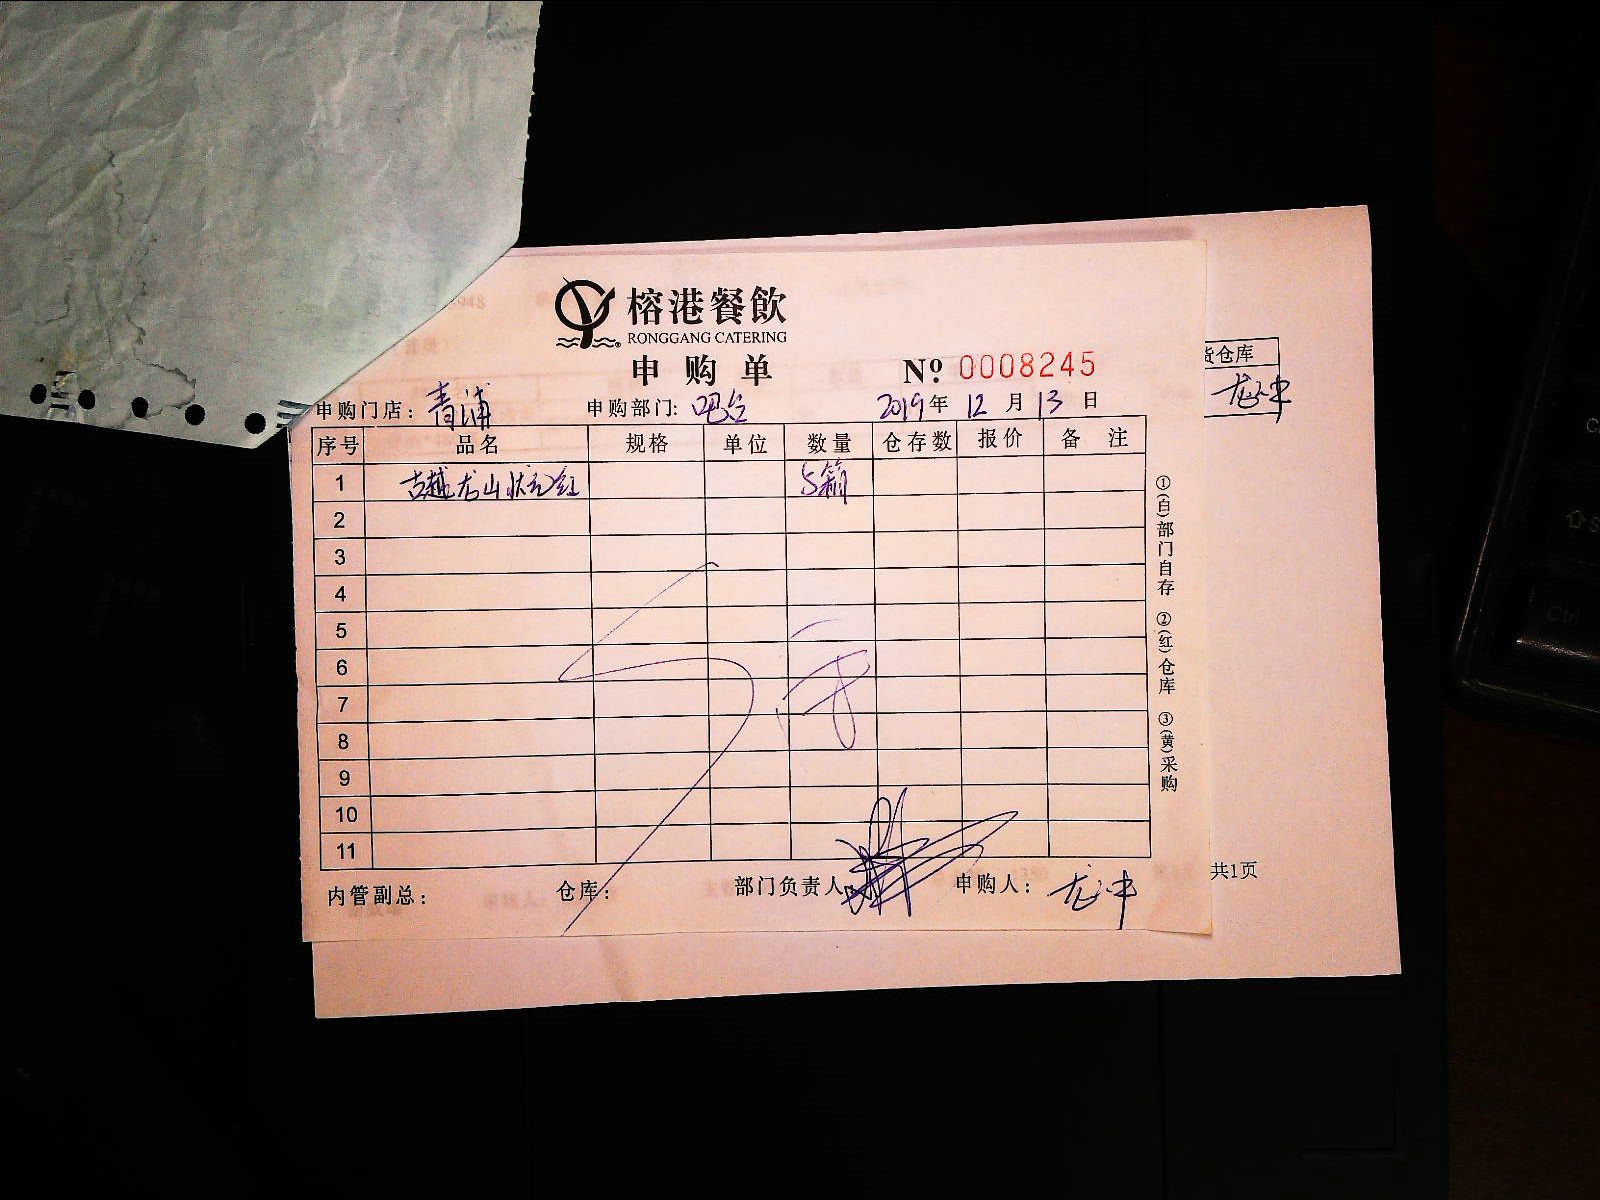 榕港餐飲
RONGGANG CATERING
申购单 Nº 0008245
申购门店：青浦 申购部门：吧台 2019年12月13日
序号 品名 规格 单位 数量 仓存数 报价 备注
1 古越龙山状元红 5箱
2
3
4
5
6
7
8
9
10
11
内管副总： 仓库： 部门负责人： 申购人：
①(白)部门自存 ②(红)仓库 ③(黄)采购
货仓库
共1页